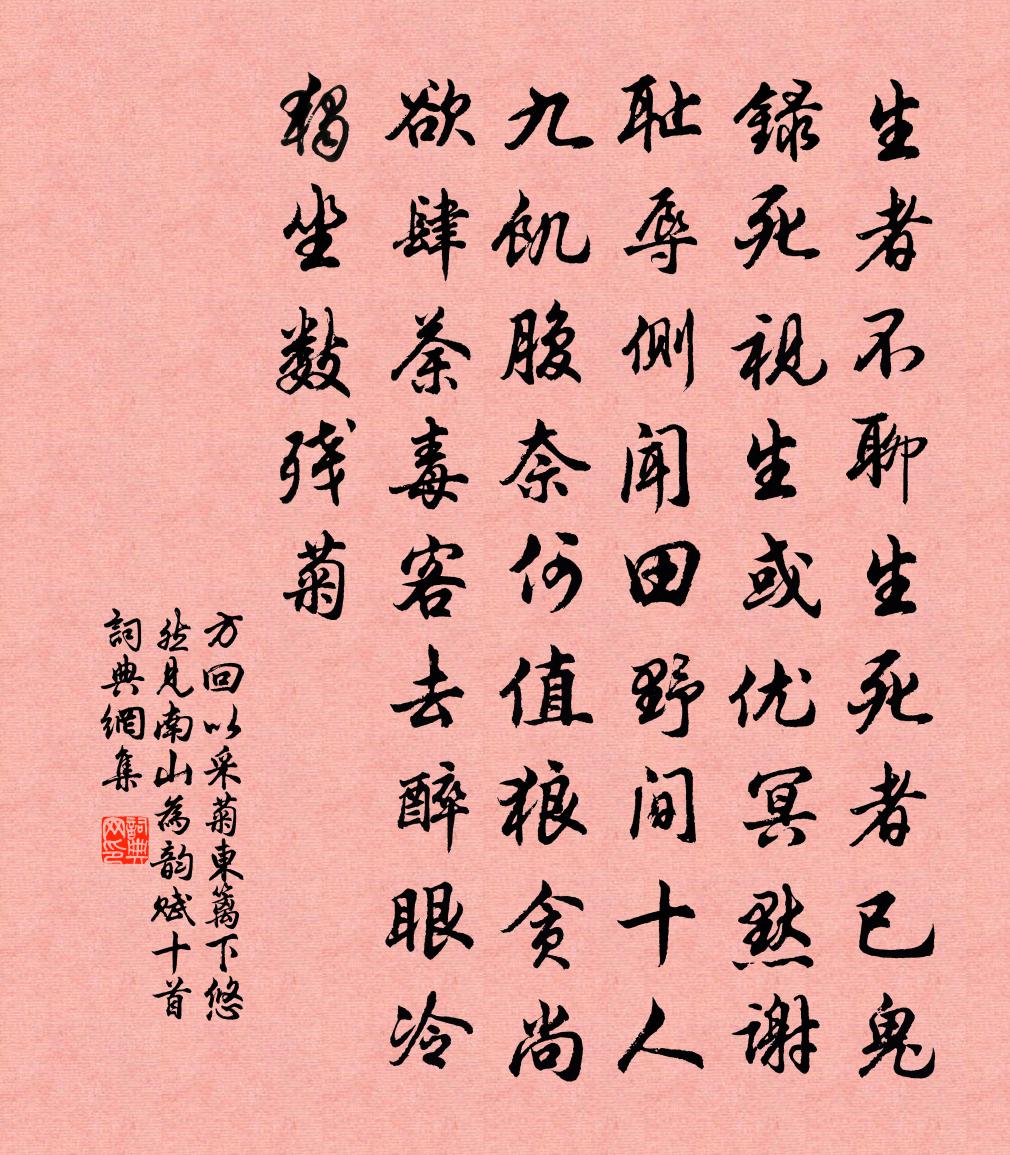 生者不聊生死者已鬼
錄死視生或优冥默谢
耻辱側聞田野間十人
九飢腹奈何值狼贪尚
欲肆荼毒客去醉眼冷
獨坐數残菊
方回以采菊東篱下悠
然見南山為韵赋十首
詞典網集
詞典網印